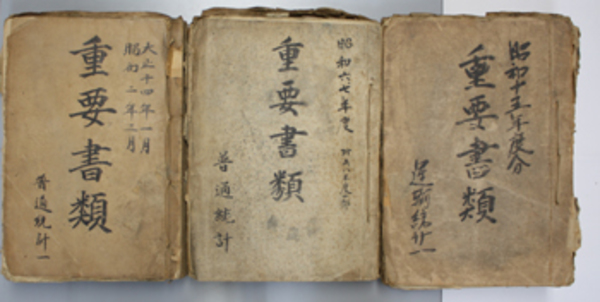 大正十四年一月
昭和二年三月
重要書類
普通統計一
昭和六七年度
重要書類
普通統計
昭和十五年度分
重要書類